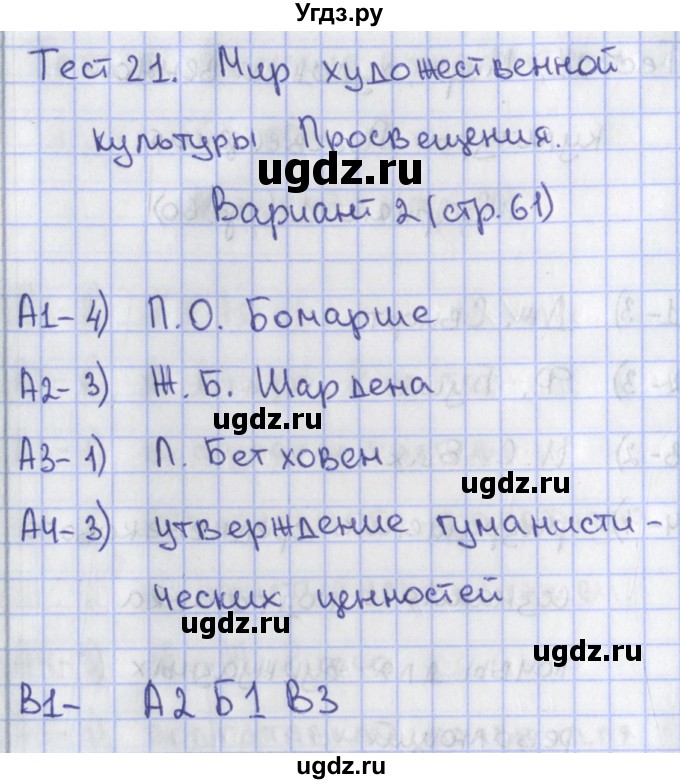 Угдз.ру
Тест 21. Мир художественной
культуры Просвещения.
ugdz.ru
Вариант 2 (стр. 61)
А1- 4) П.О. Бомарше
ugdz.ru
А2- 3) Ж.Б. Шардена
ugdz.ru
А3- 1) Л. Бетховен
ugdz.ru
А4- 3) утверждение гуманисти-
ческих ценностей
ugdz.ru
ugdz.ru
В1- А2 Б1 В3
ugdz.ru